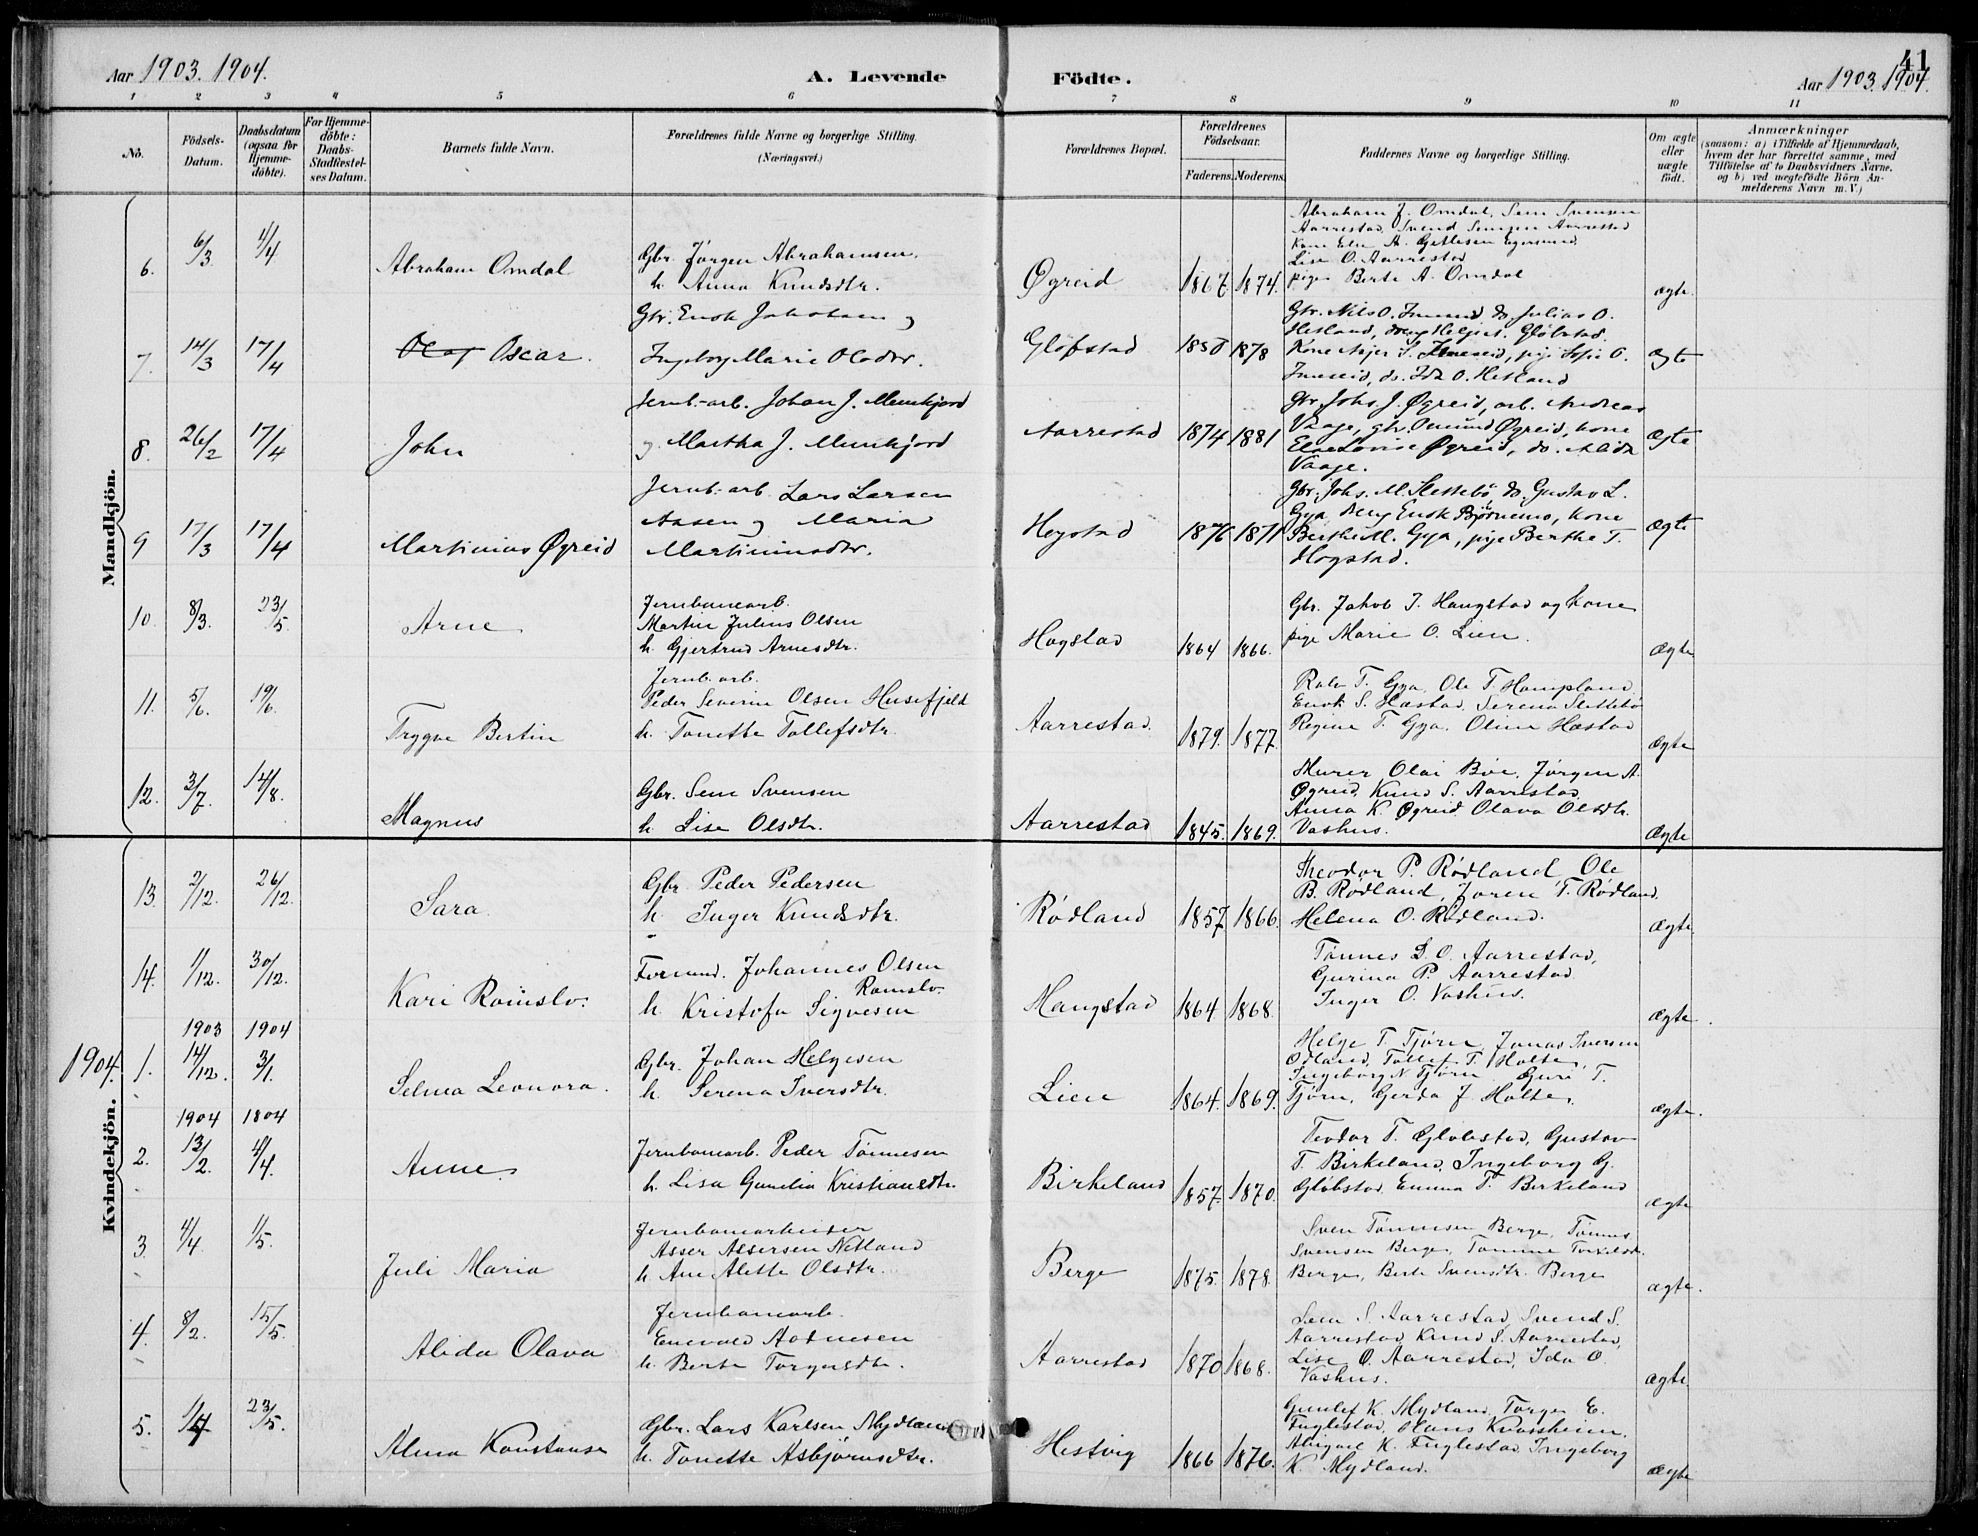 Aar 1903. 1904.
A. Levende Födte.
41
Aar 1903. 1904.
1 2 3 4 5 6 7 8 9 10 11
No.
Födsels-Datum.
Daabsdatum (ogsaa for Hjemme-döbte).
For Hjemme-döbte: Daabs-Stadfæstel-ses Datum.
Barnets fulde Navn.
Forældrenes fulde Navne og borgerlige Stilling.
(Næringsvei.)
Forældrenes Bopæl.
Forældrenes Födselsaar.
Faderens. Moderens.
Faddernes Navne og borgerlige Stilling.
Om ægte eller uægte födt.
Anmærkninger
(saasom: a) i Tilfælde af Hjemmedaab, hvem der har forrettet samme, med Tilföielse af to Daabsvidners Navne, og b) ved uægtefödte Börn An-melderens Navn m. V.)
Mandkjön.
6. 6/3 4/4 Abraham Omdal
Gbr. Jörgen Abrahamsen.
h. Anna Knudsdtr.
Øgreid 1867. 1874.
Abraham J. Omdal, Sem Svensen
Aarrestad, Svend Semsen Aarrestad
Kone Else A. Getlesen Egersund
Lise O. Aarrestad
pige Berte A. Omdal
ægte.
7. 14/3 17/4 Olaf Oscar.
Gbr. Enok Jakobsen og
Ingeborg Marie Olsdtr.
Gløfstad 1850 1878
Gbr. Nils O. do. Julius O.
Hetland, dreng Helgest. Gløbstad.
Kone S. pige Sofie O.
do. Ida O. Hetland
ægte
8. 26/2 17/4 John
Jernb.-arb. Johan J. Munkjord
og Martha J. Munkjord
Aarrestad 1874 1881
Gbr. Johs. J. Øgreid, arb. Andreas
Vaage, gbr. Omund Øgreid, kone
Else Lovise Øgreid, do. Alida
Vaage.
ægte
9 17/3 17/4 Martinius Øgreid
Jernb.-arb. Lars Larsen
Aasen og Maria
Martiniusdtr.
Hogstad 1876 1871
Gbr. Johs. M. Slettebö, do. Gustav L.
Gya dreng Enok Bjørnemo, kone
Berthe M. Gya, pige Berthe T.
Hogstad.
ægte
10. 8/3. 23/5. Arne
Jernbanearb.
Martin Julius Olsen
h. Gjertrud Arnesdtr.
Hogstad 1864 1866.
Gbr. Jakob T. Haugstad og kone
pige Marie O. Lien.
Ægte
11. 5/6. 19/6. Trygve Bertin
Jernb. arb.
Peder Severin Olsen Husefjeld
h. Tonette Tollefsdtr.
Aarrestad. 1879. 1877.
T. Gya, Ole T. Hompland
Enok S. Hæstad, Serena Slettebö
Regine T. Gya, Oline Hæstad
ægte
12. 3/7. 14/8. Magnus
Gbr. Sem Svensen
h. Lise Olsdtr.
Aarrestad 1845. 1869.
Murer Olai Böe, Jörgen A.
Øgreid, Knud S. Aarrestad.
Anna K. Øgreid, Olava Olsdtr.
Vashus.
Ægte
Kvindekjön.
13. 2/12. 26/12. Sara.
Gbr. Peder Pedersen
h. Inger Knudsdtr.
Rødland 1857 1866.
Theodor P. Rødland, Ole
B. Rødland, Joren T. Rødland.
Helena O. Rødland.
ægte
14. 1/12. 30/12. Kari Romslo.
Formand. Johannes Olsen
Romslo.
h. Kristofa Sigvesen
Haugstad 1864. 1868.
Tønnes S. O. Aarrestad,
Gurina P. Aarrestad
Inger O. Vashus.
ægte.
1903 1904
1904. 1. 14/12. 3/1. Selma Leonora.
Gbr. Johan Helgesen
h. Serena Iversdtr.
Lien 1864. 1869.
Helge T. Tjörn, Jonas Iversen
Ödland, Tollef T. Holte,
Ingeborg N. Tjörn Guri T.
Tjörn, Gerda J. Holte,
ægte.
1904 1804
2. 13/2. 4/4. Anne.
Jernbanearb. Peder Tönnesen
h. Lisa Gunelia Kristiansdtr.
Birkeland 1857. 1870.
Teodor T. Gløbstad, Gustav
T. Birkeland, Ingeborg G.
Gløbstad, Emma T. Birkeland
ægte
3. 4/4. 1/5. Juli Maria
Jernbanearbeider
Asser Assersen Netland
h. Ane Alette Olsdtr.
Berge 1875. 1878.
Sven Tönnesen Berge, Tönnes
Svensen Berge, Tomine Torkelsdtr.
Berge, Berte Svensdtr. Berge
ægte.
4. 8/2. 15/5. Alida Olava
Jernbanearb.
Enevald Aadnesen
h. Berte Torgersdtr.
Aarrestad 1870 1868.
Sem S. Aarrestad, Svend S.
Aarrestad, Knud S. Aarrestad,
Lise O. Aarrestad, Ida O.
Vashus.
ægte.
5. 1/4 23/5. Alma Konstanse
Gbr. Lars Karlsen Mydland
h. Tonette Asbjörnsdtr.
Hestvig 1866 1876.
Gunlef K. Mydland, Torger E.
Fuglestad, Hans Kvassheim,
Abigael K. Fuglestad, Ingeborg
K. Mydland.
ægte